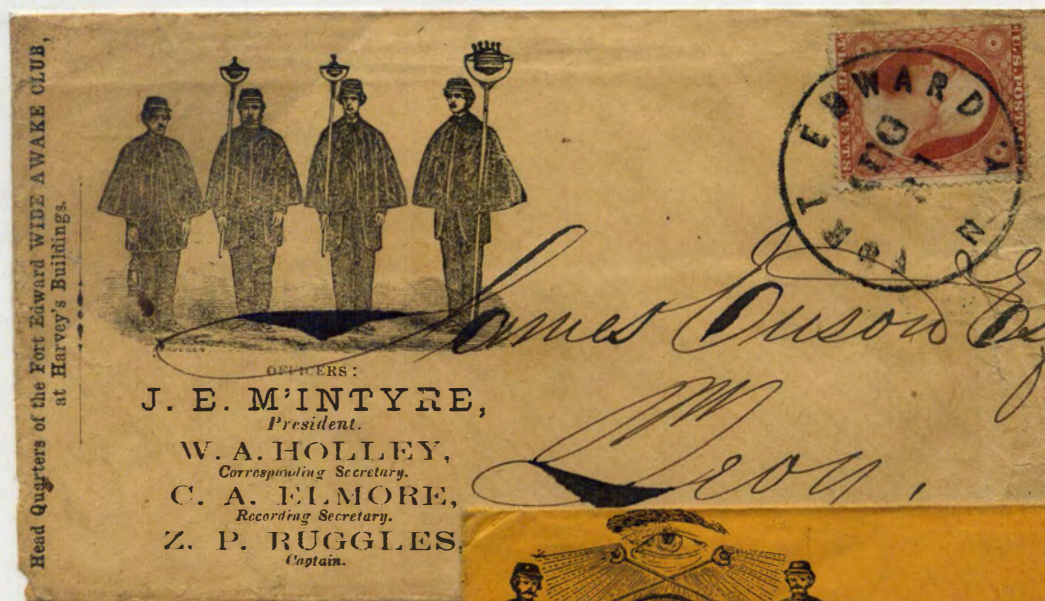 Head Quarters of the Fort Edward WIDE AWAKE CLUB,
at Harvey's Buildings.
OFFICERS:
J. E. M'INTYRE,
President.
W. A. HOLLEY,
Corresponding Secretary.
C. A. ELMORE,
Recording Secretary.
Z. P. RUGGLES,
Captain.
FORT EDWARD N.Y.
U.S. POSTAGE
James
Troy.